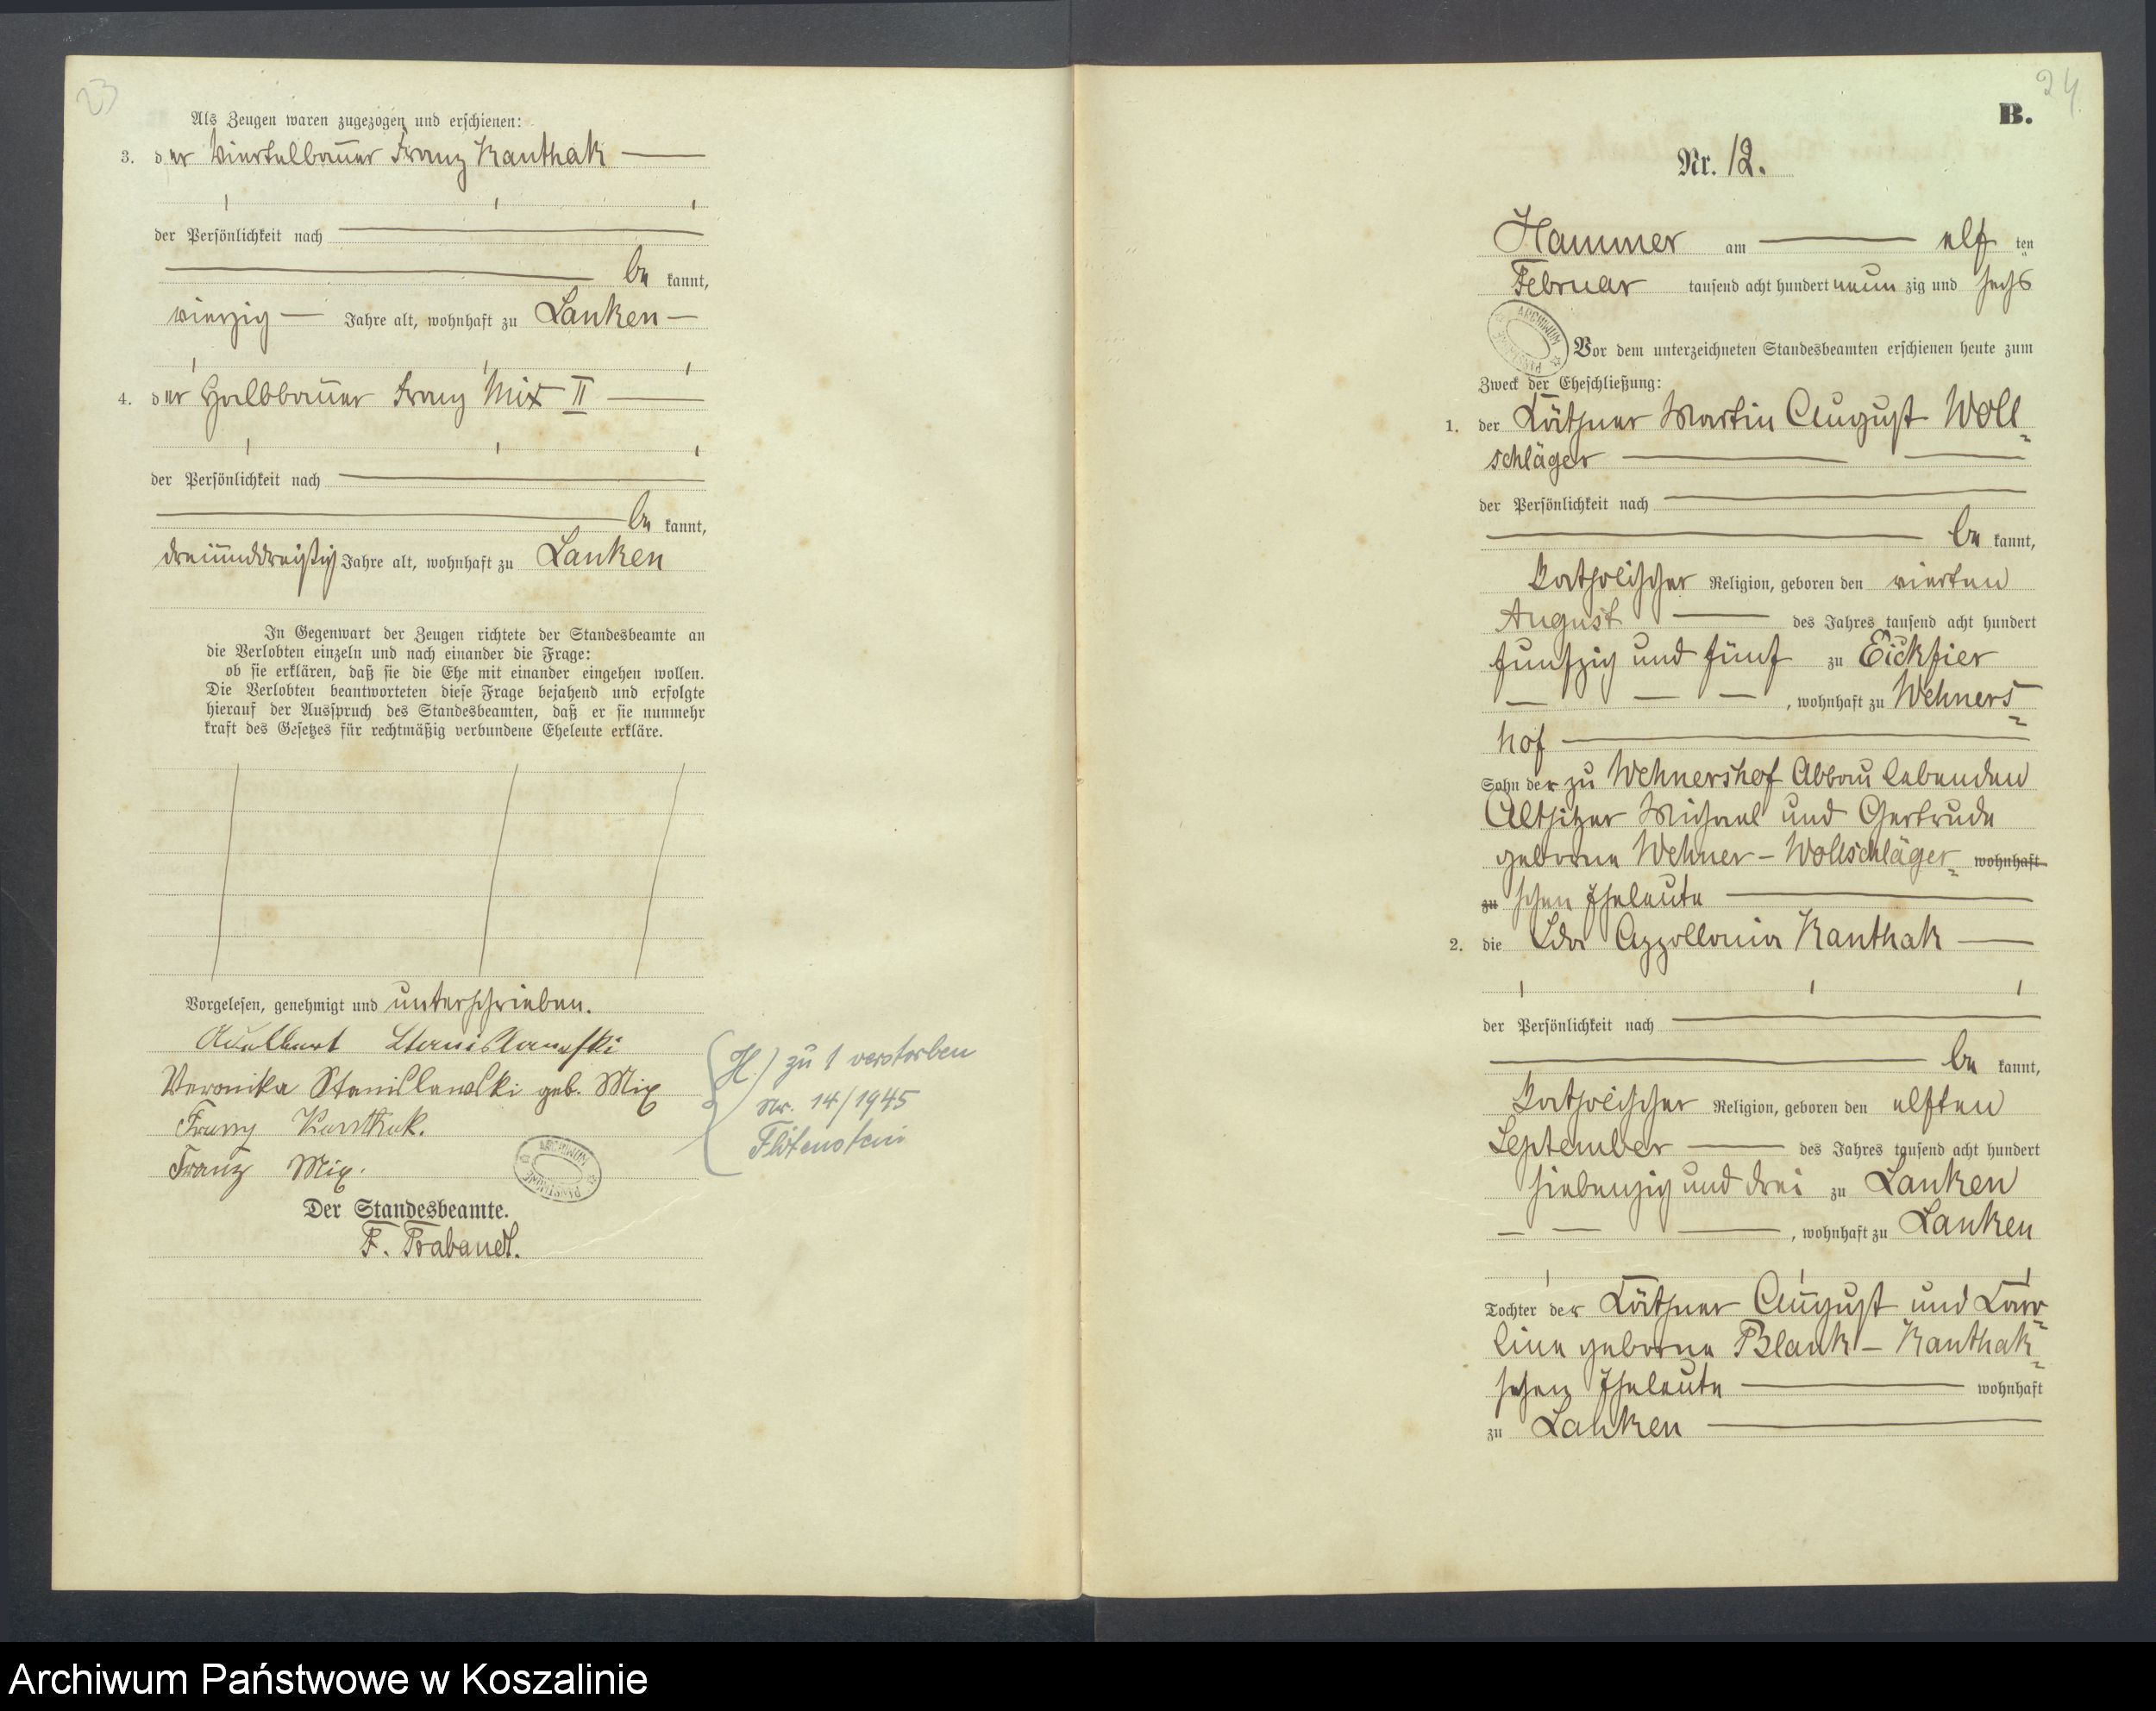 23
Als Zeugen waren zugezogen und erschienen:
3. der Viertelbauer Franz Kanthak
der Persönlichkeit nach
be kannt,
vierzig Jahre alt, wohnhaft zu Lanken
4. der Halbbauer Franz Mix II
der Persönlichkeit nach
be kannt,
dreiunddreißig Jahre alt, wohnhaft zu Lanken
In Gegenwart der Zeugen richtete der Standesbeamte an
die Verlobten einzeln und nach einander die Frage:
ob sie erklären, daß sie die Ehe mit einander eingehen wollen.
Die Verlobten beantworteten diese Frage bejahend und erfolgte
hierauf der Ausspruch des Standesbeamten, daß er sie nunmehr
kraft des Gesetzes für rechtmäßig verbundene Eheleute erkläre.
Vorgelesen, genehmigt und unterschrieben.
Adalbert Stanislawski
Veronika Stanislawski geb. Mix
Franz Kanthak.
Franz Mix.
ARCHIWUM PAŃSTWOWE
Der Standesbeamte.
F. Trabandt.
H.) zu 1 verstorben
Nr. 14/1945
Flötenstein
24
B.
Nr. 12.
Hammer am elf ten
Februar tausend acht hundert neun zig und sechs
ARCHIWUM PAŃSTWOWE
Vor dem unterzeichneten Standesbeamten erschienen heute zum
Zweck der Eheschließung:
1. der Käthner Martin August Woll=
schläger
der Persönlichkeit nach
be kannt,
katholischer Religion, geboren den vierten
August des Jahres tausend acht hundert
funfzig und fünf zu Eickfier
, wohnhaft zu Wehners=
hof
Sohn der zu Wehnershof Abbau lebenden
Altsitzer Michael und Gertrude
geborne Wehner - Wollschläger= wohnhaft
zu schen Eheleute
2. die Ida Appollonia Kanthak
der Persönlichkeit nach
be kannt,
katholischer Religion, geboren den elften
September des Jahres tausend acht hundert
siebenzig und drei zu Lanken
, wohnhaft zu Lanken
Tochter der Käthner August und Karo=
line geborne Blank - Kanthak=
schen Eheleute wohnhaft
zu Lanken
Archiwum Państwowe w Koszalinie